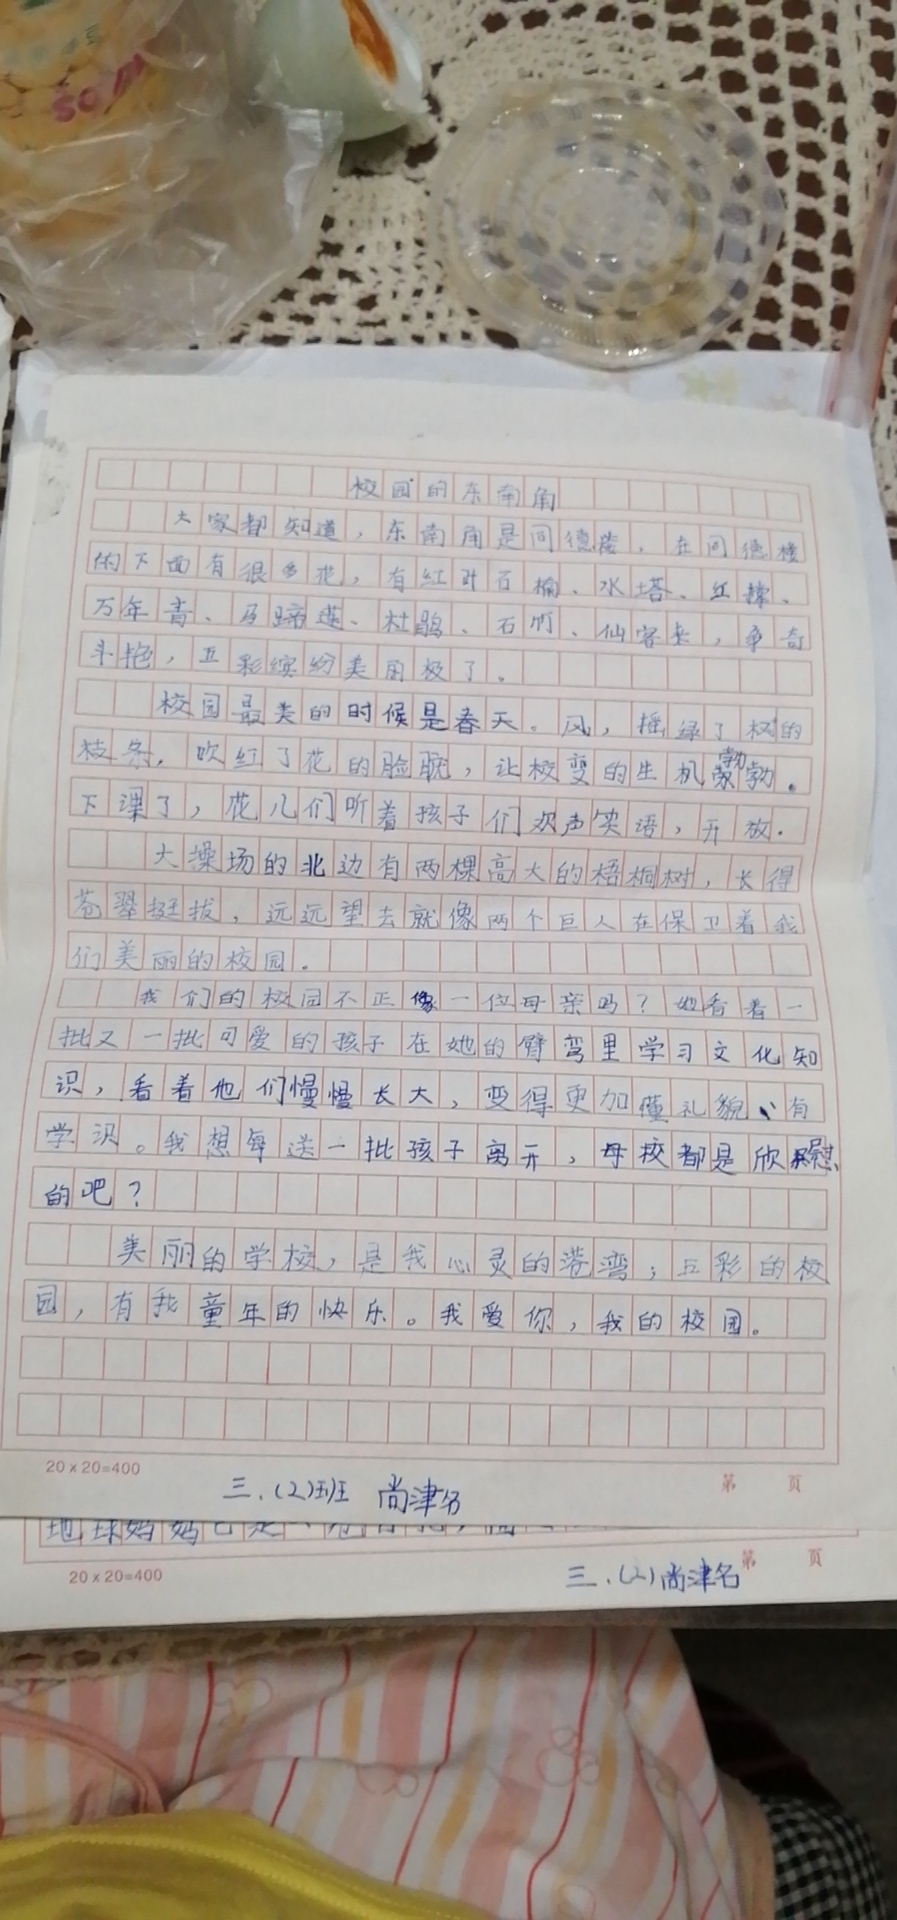 SO
校园的东南角
大家都知道，东南角是同德楼，在同德楼
的下面有很多花，有红叶石榴、水塔、红
万年青、马蹄莲、杜鹃、石竹、仙客来，争奇
斗艳，五彩缤纷美丽极了。
校园最美的时候是春天。风，摇绿了树的
枝条，吹红了花的脸，让校变的生机勃勃。
下课了，花儿们听着孩子们欢声笑语，开放．
大操场的北边有两棵高大的梧桐树，长得
苍翠挺拔，远远望去就像两个巨人在保卫着我
们美丽的校园．
我们的校园不正像一位母亲吗？她看着一
批又一批可爱的孩子在她的臂弯里学习文化知
识，看着他们慢慢长大，变得更加懂礼貌、有
学识。我想每送一批孩子离开，母校都是欣慰
的吧？
美丽的学校，是我心灵的港湾；五彩的校
园，有我童年的快乐。我爱你，我的校园。
20×20=400
第 页
三.(2)班 尚津名
地球妈妈已是
20×20=400
第 页
三.(2)尚津名